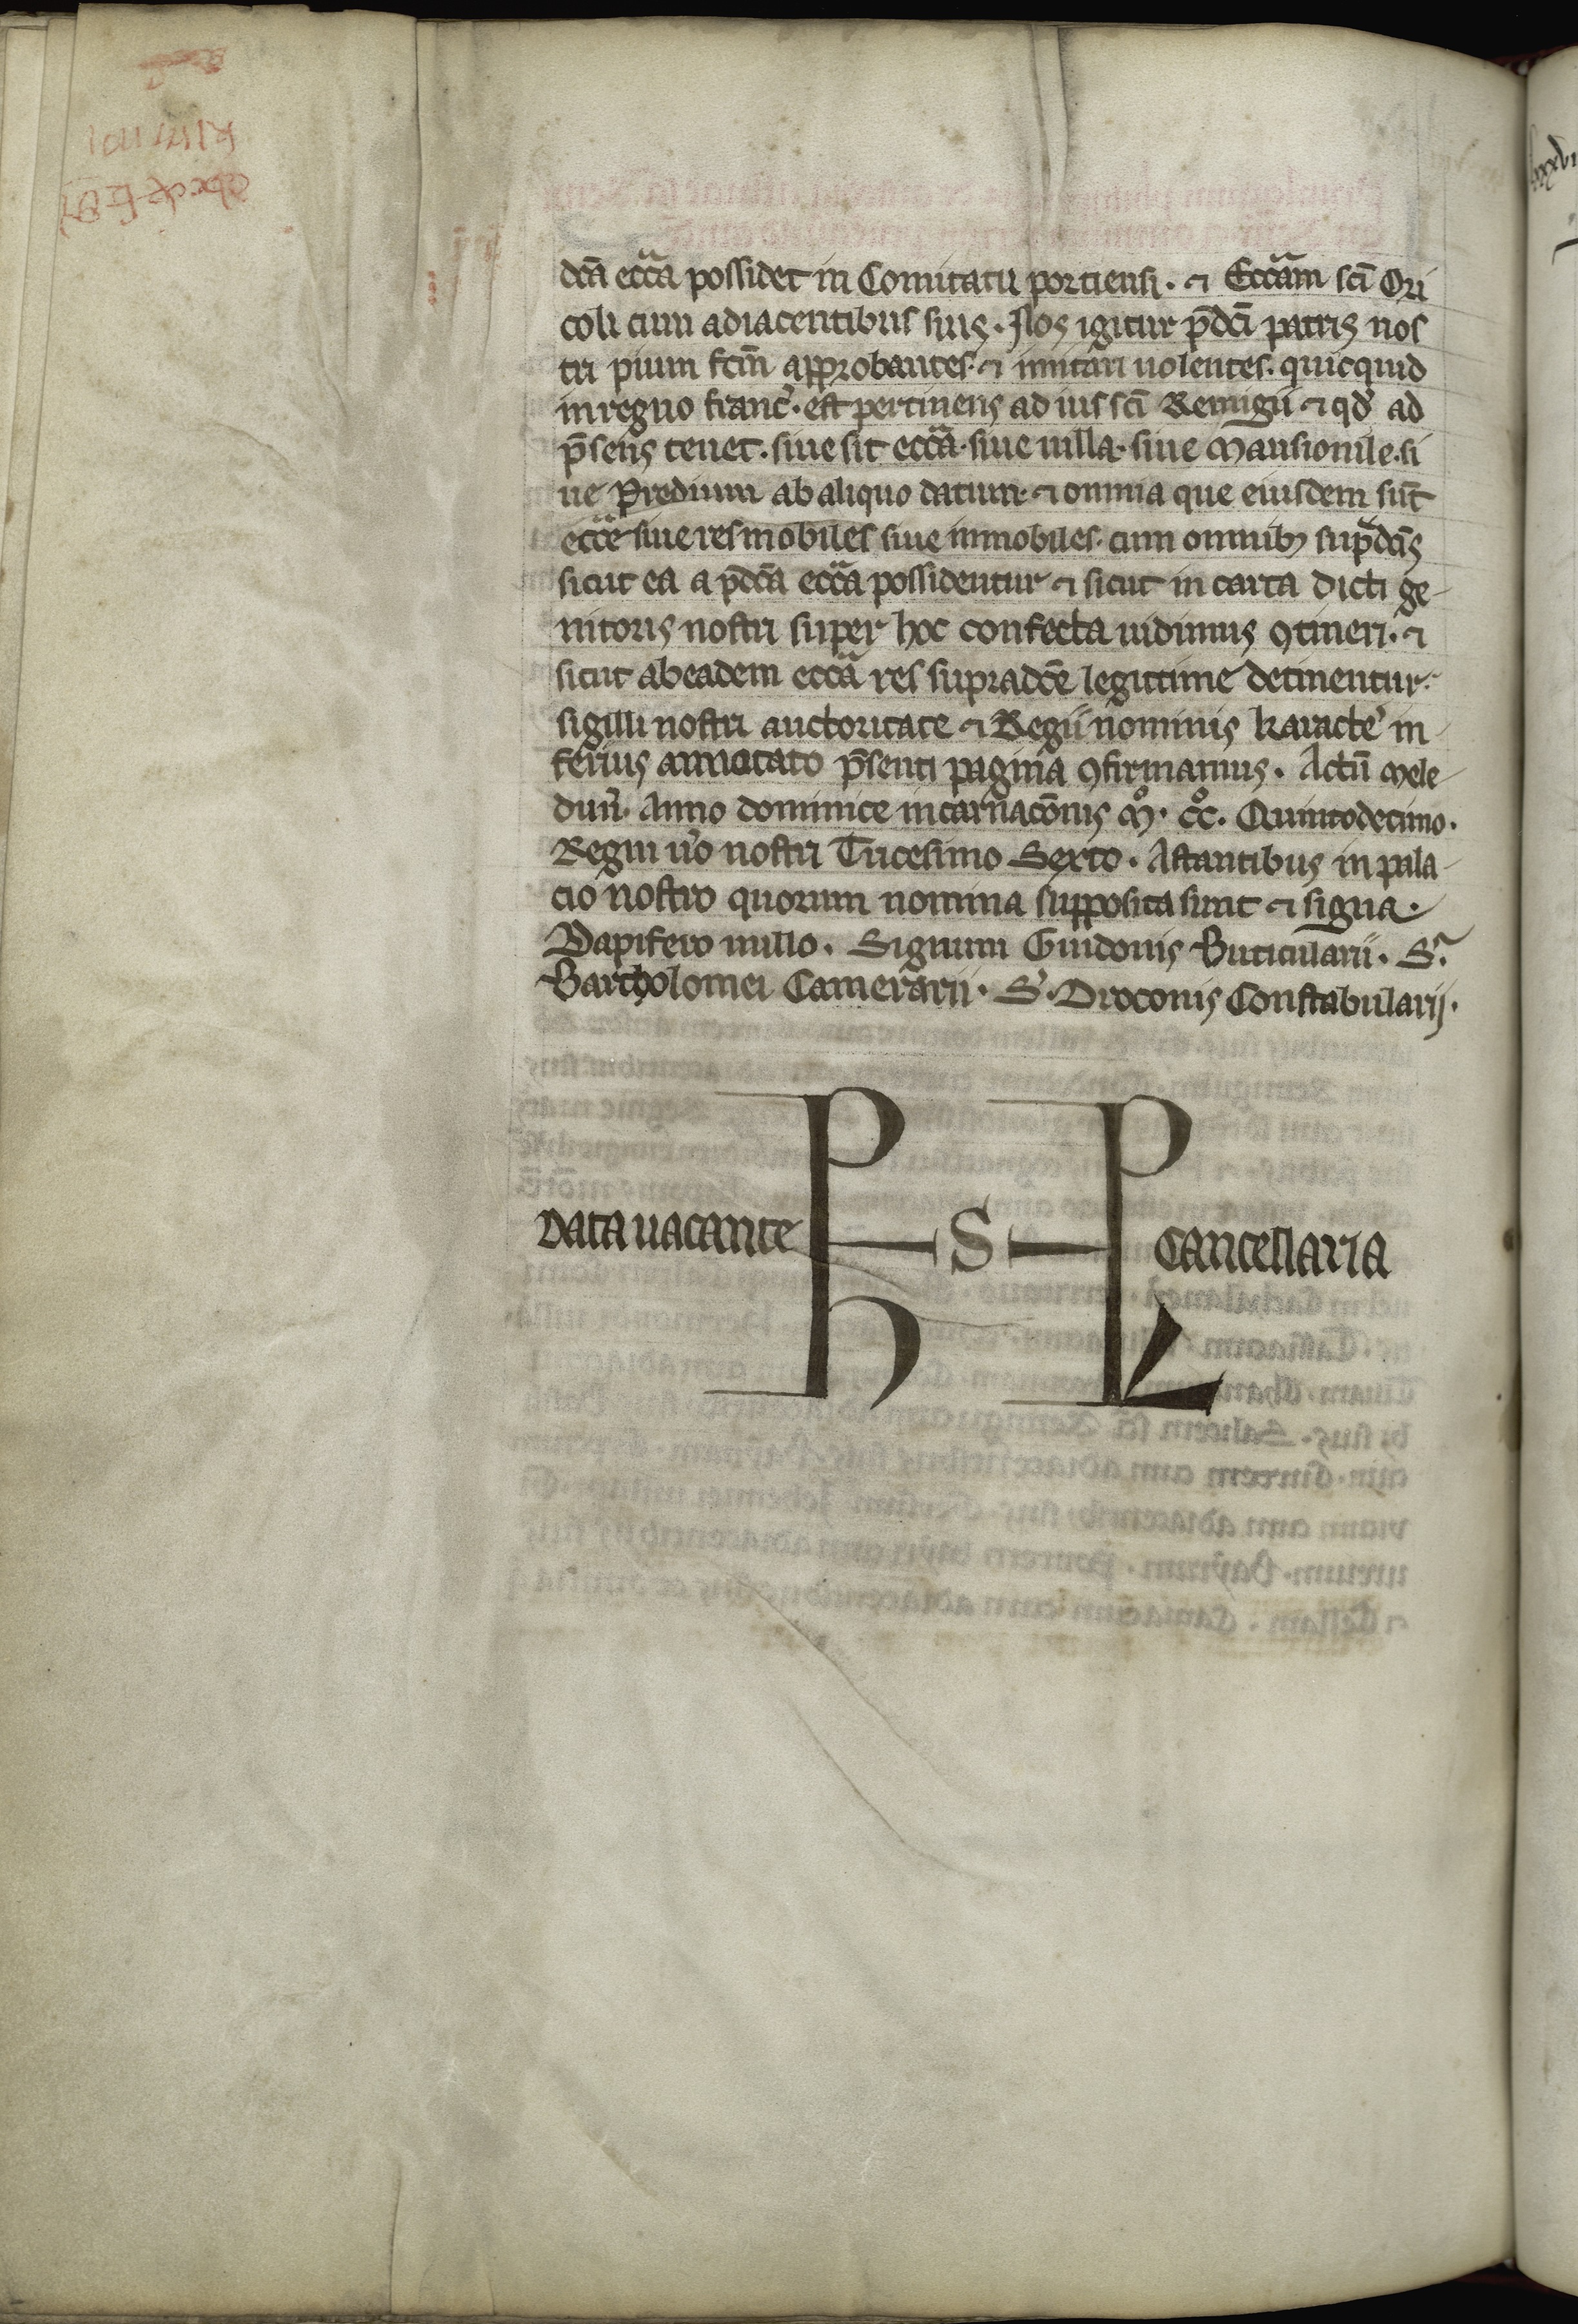 dcā eccͣa possidet in Comitatu portiensi. ⁊ Eccͣam scī Ori
coli cum adiacentibus suis. Nos igitur p̄dcī patris nos
tri pium fcm̄ approbantes. ⁊ imitari uolentes. quicquid
in regno franc̕. est pertinens ad ius scī Remigii ⁊ qd̕ ad
p̄sens tenet. siue sit eccͣa. siue uilla. siue Mansionile. si
ue Predium ab aliquo datum. ⁊ omnia que eiusdem sūt
ecc̄e siue res mobiles siue inmobiles. cum omnibꝫ supͣdcīs
sicut ea a p̄dcā eccͣa possidentur ⁊ sicut in carta dicti ge-
nitoris nostri super hoc confecta uidimus ꝯtineri. ⁊
sicut ab eadem eccͣa res supradcē legittime detinentur.
sigilli nostri auctoritate ⁊ Regii nominis karacte̕ in
ferius annotato p̄senti pagina ꝯfirmamus. Actū Mele-
dun̄. Anno dominice incarnacōnis M̊. CC̊. Quintodecimo.
Regni u̕o nostri Tricesimo Sexto. Astantibus in pala-
cio nostro quorum nomina supposita sunt ⁊ signa.
Dapifero nullo. Signum Guidonis Buticularii. S̕.
Bartholomei Camerarii. S̕. Droconis Constabularij.
Data uacante
P
h S P
L
Cancellaria